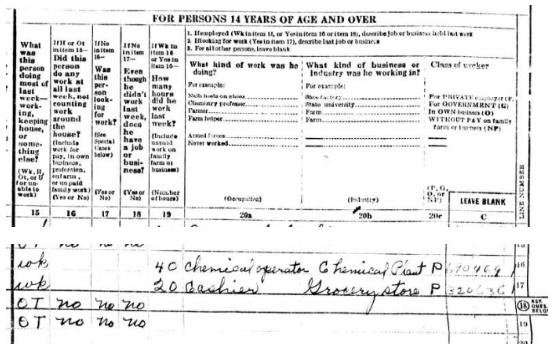 FOR PERSONS 14 YEARS OF AGE AND OVER
1. If employed (Wk in item 15, or Yes in item 16 or item 18), describe job or business held last week
2. If looking for work (Yes in item 17), describe last job or business
3. For all other persons, leave blank
What was this person doing most of last week— working, keeping house, or something else?
(Wk, H, Ot, or U for unable to work)
If H or Ot in item 15— Did this person do any work at all last week, not counting work around the house?
(Include work for pay, in own business, profession, on farm, or unpaid family work)
(Yes or No)
If No in item 16— Was this person looking for work?
(See Special Cases below)
(Yes or No)
If No in item 17— Even though he didn't work last week, does he have a job or business?
(Yes or No)
If Wk in item 15 or Yes in item 16— How many hours did he work last week?
(Include unpaid work on family farm or business)
(Number of hours)
What kind of work was he doing?
For example:
Nails heels on shoes
Chemistry professor
Farmer
Farm helper
Armed forces
Never worked
(Occupation)
What kind of business or industry was he working in?
For example:
Shoe factory
State university
Farm
Farm
(Industry)
Class of worker
For PRIVATE employer (P)
For GOVERNMENT (G)
In OWN business (O)
WITHOUT PAY on family farm or business (NP)
(P, G, O, or NP)
LEAVE BLANK
LINE NUMBER
15 16 17 18 19 20a 20b 20c C
OT no no no
wk 40 chemical operator Chemical Plant P 16
wk 20 Cashier Grocery store P 320636 1 17
OT no no no 18 ASK QUES. BELOW
OT no no no 19